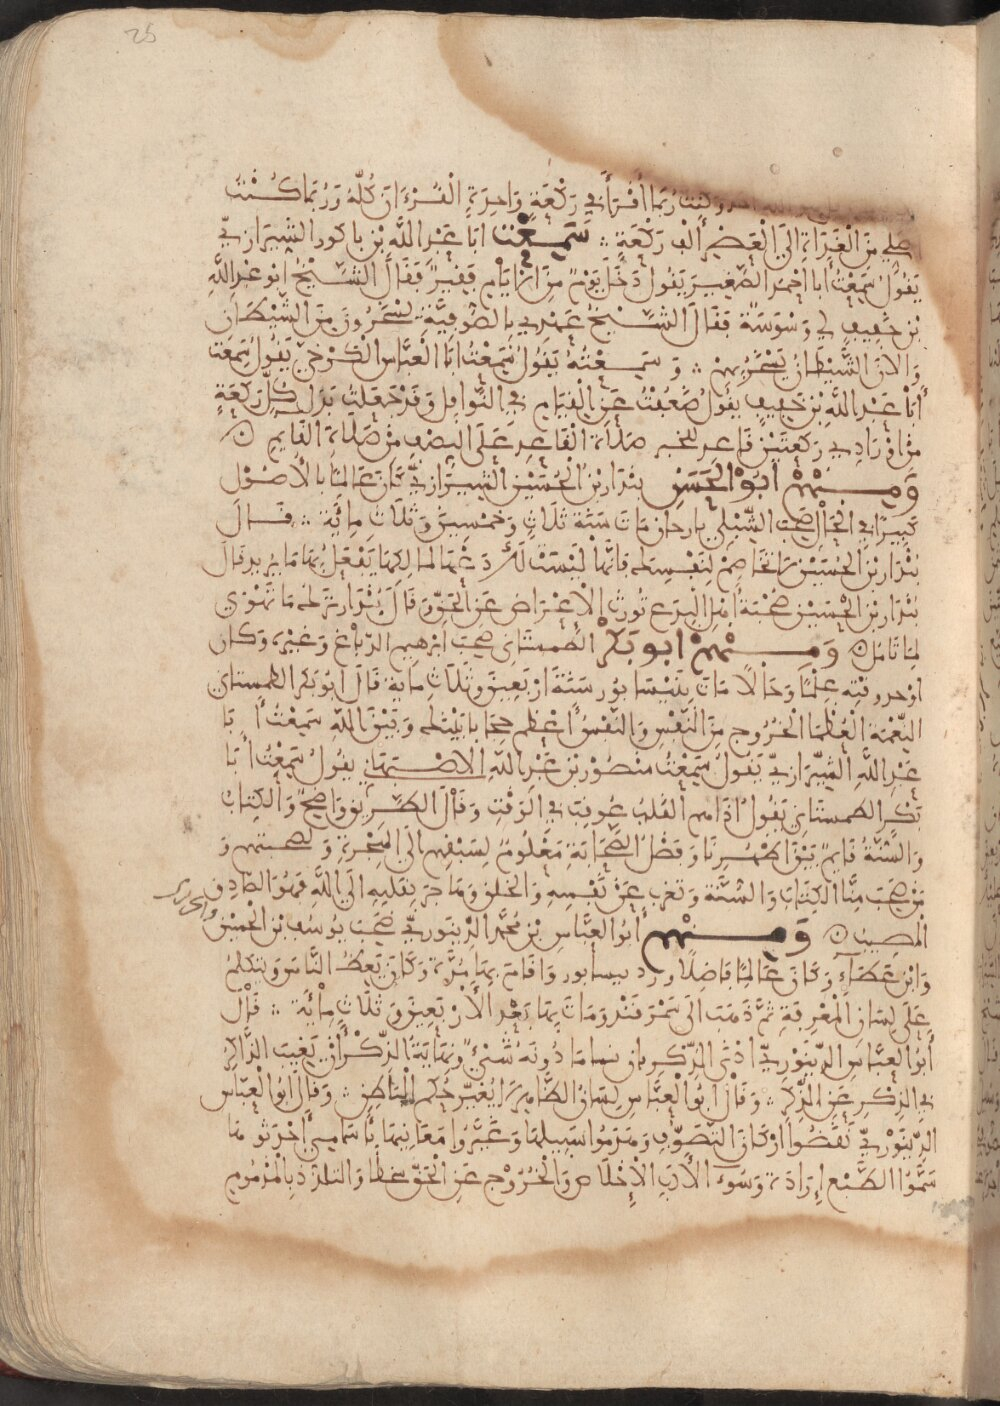 25
وكنت ربما أقرأ في ركعة واحدة القرءان كله وربما كنت
أصلي من الغداة إلى العصر ألف ركعة ∴ سمعت أبا عبد الله بن باكويه الشيرازي
يقول سمعت أبا أحمد الصغير يقول دخل يوم من الأيام فقير فقال الشيخ أبو عبد الله
بن خفيف لي وسوسة فقال الشيخ عهدي بالصوفية يسخرون من الشيطان
والآن الشيطان يسخر بهم ∴ وسمعته يقول سمعت أبا العباس الكرخي يقول سمعت
أبا عبد الله بن خفيف يقول ضعفت عن القيام في النوافل وقد جعلت بدل كل ركعة
من أورادي ركعتين قاعدا للخبر صلاة القاعد على النصف من صلاة القايم
ومنهم أبو الحسن بندار بن الحسين الشيرازي كان عالما بالأصول
كبيرا في الحال صحب الشبلي بارجان مات سنة ثلاث وخمسين وثلاث مائة ∴ قال
بندار بن الحسين لا تخاصم لنفسك فإنها ليست لك دعها لمالكها يفعل بها ما يريد وقال
بندار بن الحسين صحبة أهل البدع تورث الإعراض عن الحق قال بندار اترك ما تهوى
لما تامل ومنهم أبو بكر الطمستاني صحب ابرهيم الدباغ وغيره وكان
اوحد وقته علما وحالا مات بنيسابور سنة أربعين وثلاث ماية قال أبو بكر الطمستاني
النعمة العظما الخروج من النفس والنفس أعظم حجاب بينك وبين الله سمعت أبا
عبد الله الشيرازي يقول سمعت منصور بن عبد الله الاصبهاني يقول سمعت أبا
بكر الطمستاني يقول إذا هم القلب عوقب في الوقت وقال الطريق واضح والكتاب
والسنة قايم بين أظهرنا وفضل الصحابة معلوم لسبقهم إلى الهجرة ولصحبتهم و
من صحب منا الكتاب والسنة وتغرب عن نفسه والخلق وهاجر بقلبه إلى الله فهو الصادق
المصيب ومنهم أبو العباس بن محمد الدينوري صحب يوسف بن الحسين
وابن عطاء وكان عالما فاضلا ورد نيسابور وأقام بها مدة وكان يعظ الناس ويتكلم
على لسان المعرفة ثم ذهب إلى سمرقند ومات بها بعد الأربعين وثلاث مائة ∴ قال
أبو العباس الدينوري أدنى الذكر أن تنسى ما دونه شيء ونهاية الذكر أن يغيب الذاكر
في الذكر عن الذكر ∴ وقال أبو العباس لسان الظاهر لا يغير حكم الباطن ∴ وقال أبو العباس
الدينوري نقضوا أركان التصوف وهدموا سبيلها وغيروا معانيها بأسامي أحدثوها
سموا الطمع إرادة وسوء الأدب الإخلاص والخروج عن الحق شطحا والتلذذ بالمذموم